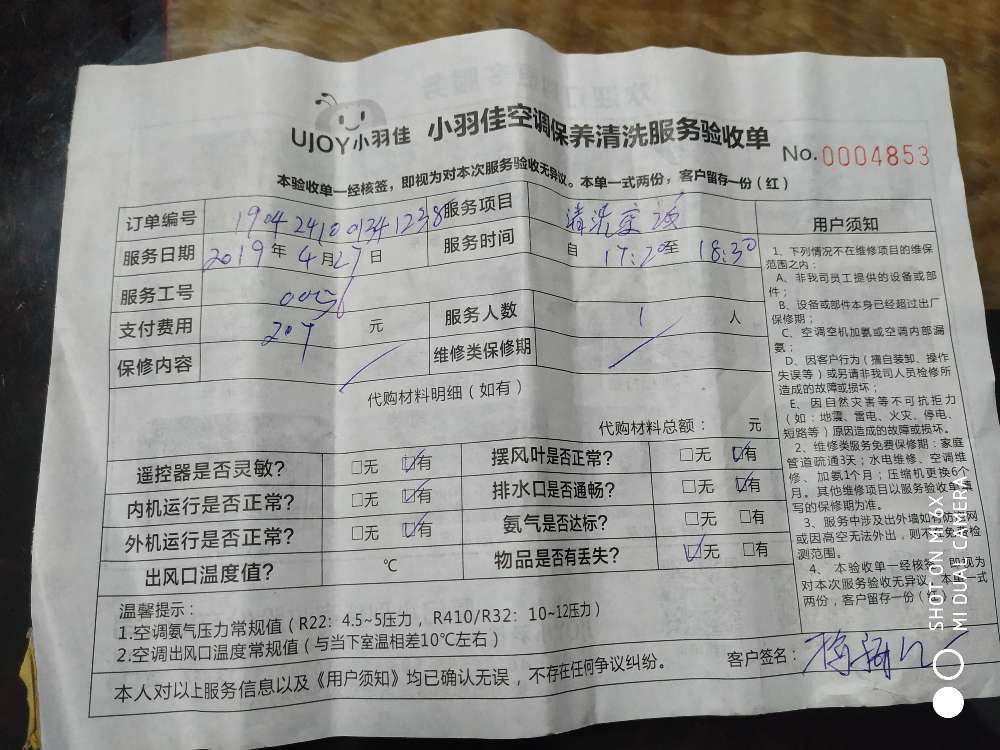 UJOY小羽佳 小羽佳空调保养清洗服务验收单
No. 0004853
本验收单一经核签，即视为对本次服务验收无异议。本单一式两份，客户留存一份（红）
订单编号 服务项目 清洗空调
服务日期 2019年4月27日 服务时间 自 17:20至 18:30
服务工号
支付费用 元 服务人数 1 人
保修内容 维修类保修期
代购材料明细（如有）
代购材料总额： 元
遥控器是否灵敏？ □无 ☑有 摆风叶是否正常？ □无 ☑有
内机运行是否正常？ □无 ☑有 排水口是否通畅？ □无 ☑有
外机运行是否正常？ □无 ☑有 氨气是否达标？ □无 □有
出风口温度值？ ℃ 物品是否有丢失？ ☑无 □有
温馨提示：
1.空调氨气压力常规值（R22：4.5~5压力，R410/R32：10~12压力）
2.空调出风口温度常规值（与当下室温相差10℃左右）
本人对以上服务信息以及《用户须知》均已确认无误，不存在任何争议纠纷。
客户签名：
用户须知
1、下列情况不在维修项目的维保
范围之内：
A、非我司员工提供的设备或部
件；
B、设备或部件本身已经超过出厂
保修期；
C、空调空机加氨或空调内部漏
氨；
D、因客户行为（擅自装卸、操作
失误等）或另请非我司人员检修所
造成的故障或损坏；
E、因自然灾害等不可抗拒力
（如：地震、雷电、火灾、停电、
短路等）原因造成的故障或损坏。
2、维修类服务免费保修期：家庭
管道疏通3天；水电维修、空调维
修、加氨1个月；压缩机更换6个
月。其他维修项目以服务验收单填
写的保修期为准。
3、服务中涉及出外墙如有防盗网
或因高空无法外出，则不在免费检
测范围。
4、本验收单一经核签，即视为
对本次服务验收无异议。本单一式
两份，客户留存一份（红）
SHOT ON MI 6X
MI DUAL CAMERA